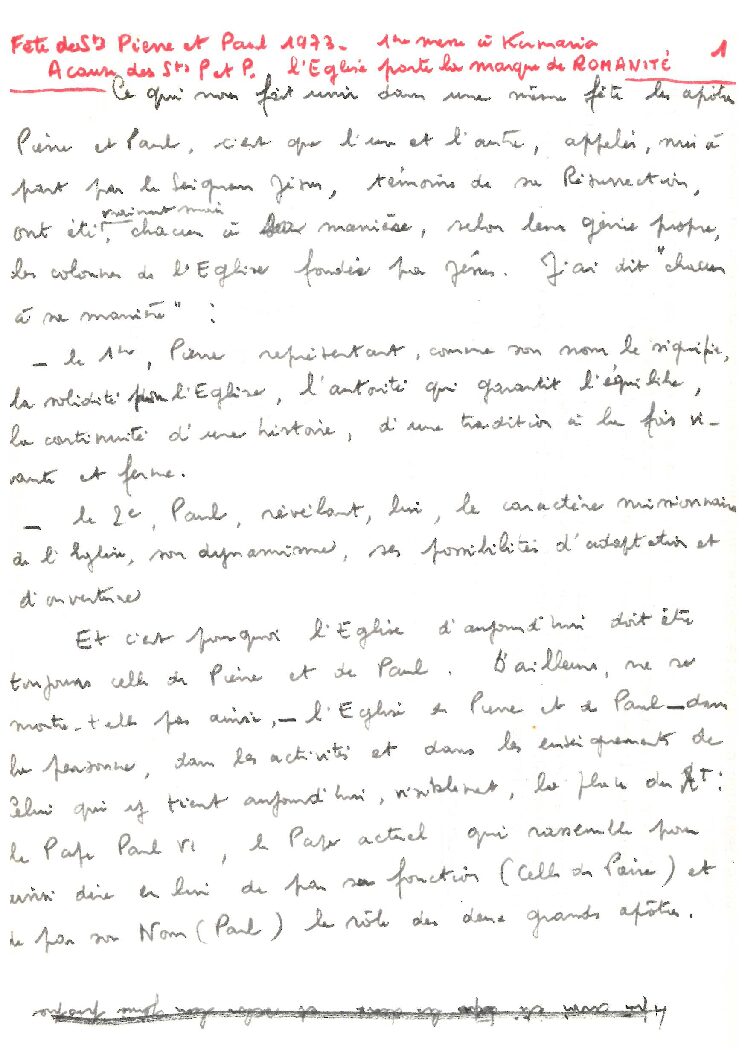 Fête des Sts Pierre et Paul 1973. 1ère messe à Kermaria
1
A cause des Sts P et P. l'Eglise porte la marque de ROMANITÉ
Ce qui nous fait unir dans une même fête les apôtres
Pierre et Paul, c'est que l'un et l'autre, appelés, mis à
part par le Seigneur Jésus, témoins de sa Résurrection,
vraiment mais
ont été, chacun à manière, selon leur génie propre,
les colonnes de l'Eglise fondée par Jésus. J'ai dit "chacun
à sa manière" :
– le 1er, Pierre représentant, comme son nom le signifie,
la solidité pour l'Eglise, l'autorité qui garantit l'équilibre,
la continuité d'une histoire, d'une tradition à la fois vi-
vante et ferme.
– le 2e, Paul, révélant, lui, le caractère missionnaire
de l'Eglise, son dynamisme, ses possibilités d'adaptation et
d'ouverture
Et c'est pourquoi l'Eglise d'aujourd'hui doit être
toujours celle de Pierre et de Paul. D'ailleurs, ne se
montre-t-elle pas ainsi, – l'Eglise de Pierre et de Paul – dans
la personne, dans les activités et dans les enseignements de
Celui qui y tient aujourd'hui, visiblement, la place du :
le Pape Paul VI, le Pape actuel qui rassemble pour
ainsi dire en lui de par sa fonction (celle de Pierre) et
de par son Nom (Paul) le rôle des deux grands apôtres.